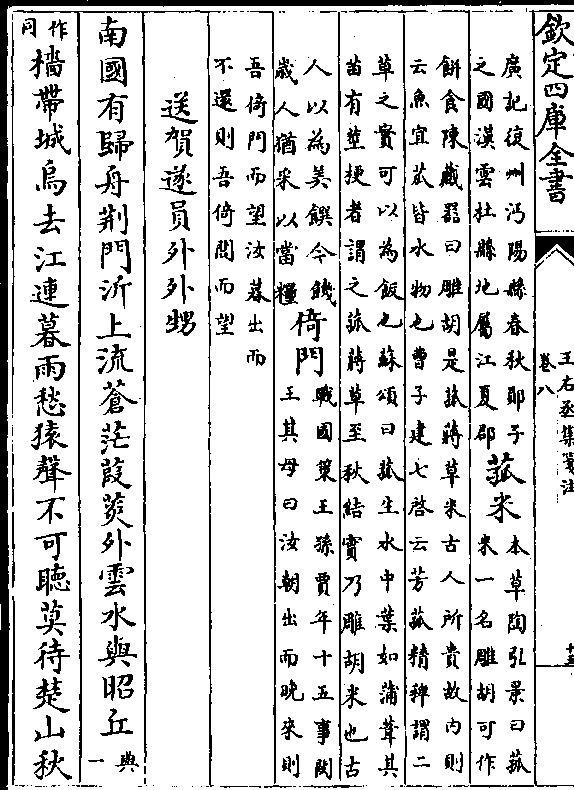 欽定四庫全書
王右丞集箋注
卷八
十五
廣記復州沔陽縣春秋鄖子
之國漢雲杜縣地屬江夏郡
菰米
本草陶弘景曰菰
米一名雕胡可作
餅食陳藏器曰雕胡是菰蔣草米古人所貴故内則
云魚宜菰皆水物也曹子建七啓云芳菰精稗謂二
草之實可以為飯也蘇頌曰菰生水中葉如蒲葦其
苗有莖梗者謂之菰蔣草至秋結實乃雕胡米也古
人以為美饌今饑
歳人猶采以當糧
倚門
戰國策王孫賈年十五事閔
王其母曰汝朝出而晚來則
吾倚門而望汝暮出而
不還則吾倚閭而望
送賀遂員外外甥
南國有歸舟荆門泝上流蒼茫葭菼外雲水與昭丘
與
一
作
同
檣帶城烏去江連暮雨愁猿聲不可聽莫待楚山秋